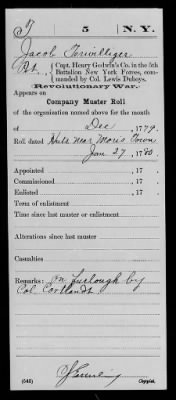 T 5 N.Y.
Jacob Terwilliger
Pvt., Capt. Henry Godwin's Co. in the 5th
Battalion New York Forces, com-
manded by Col. Lewis Duboys.
Revolutionary War.
Appears on
Company Muster Roll
of the organization named above for the month
of Dec, 1779.
Roll dated Hutts near Moris Town
Jan 27, 1780.
Appointed , 17
Commissioned , 17
Enlisted , 17
Term of enlistment
Time since last muster or enlistment
Alterations since last muster
Casualties
Remarks: On Furlough by
Col. Cortlandt
(545) Copyist.